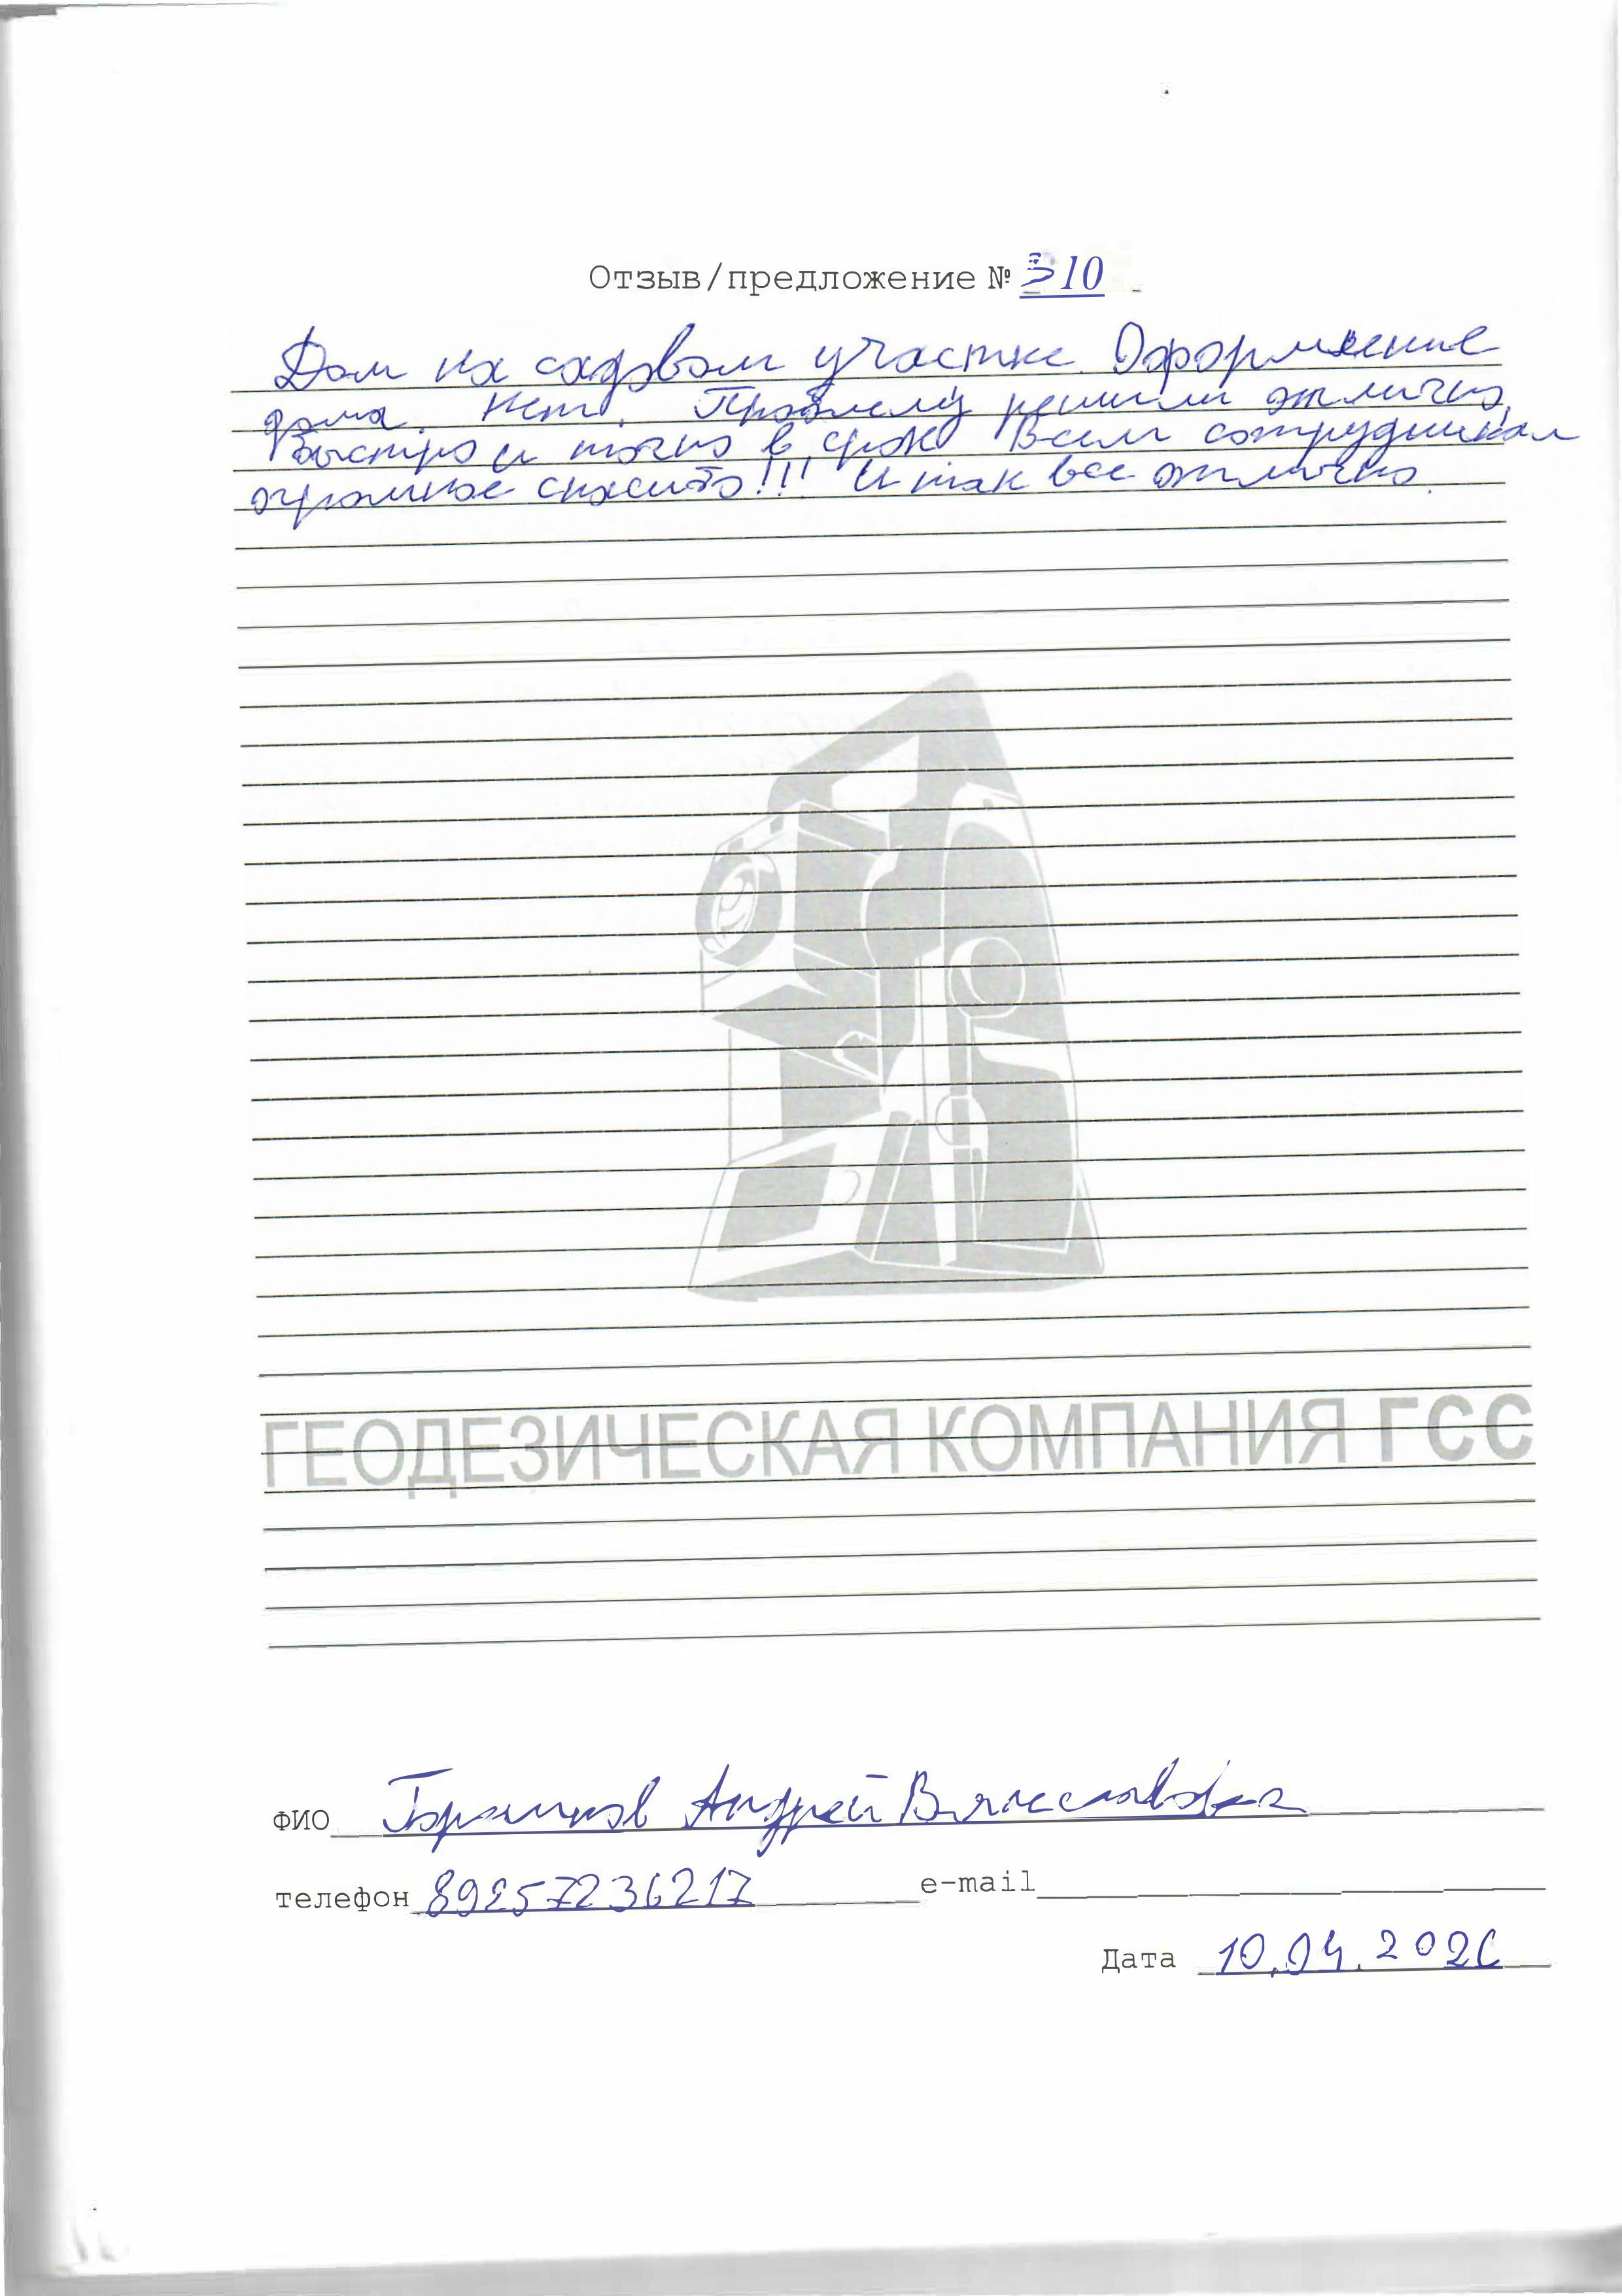 Отзыв/предложение № 310
Дом на садовом участке. Оформление
дома. Нет. Проблему решили отлично,
Быстро и точно в срок Всем сотрудникам
огромное спасибо!!! И так все отлично.
ГЕОДЕЗИЧЕСКАЯ КОМПАНИЯ ГСС
ФИО Андрей Вячеславович
телефон 89257236217 e-mail
Дата 10.04.2026